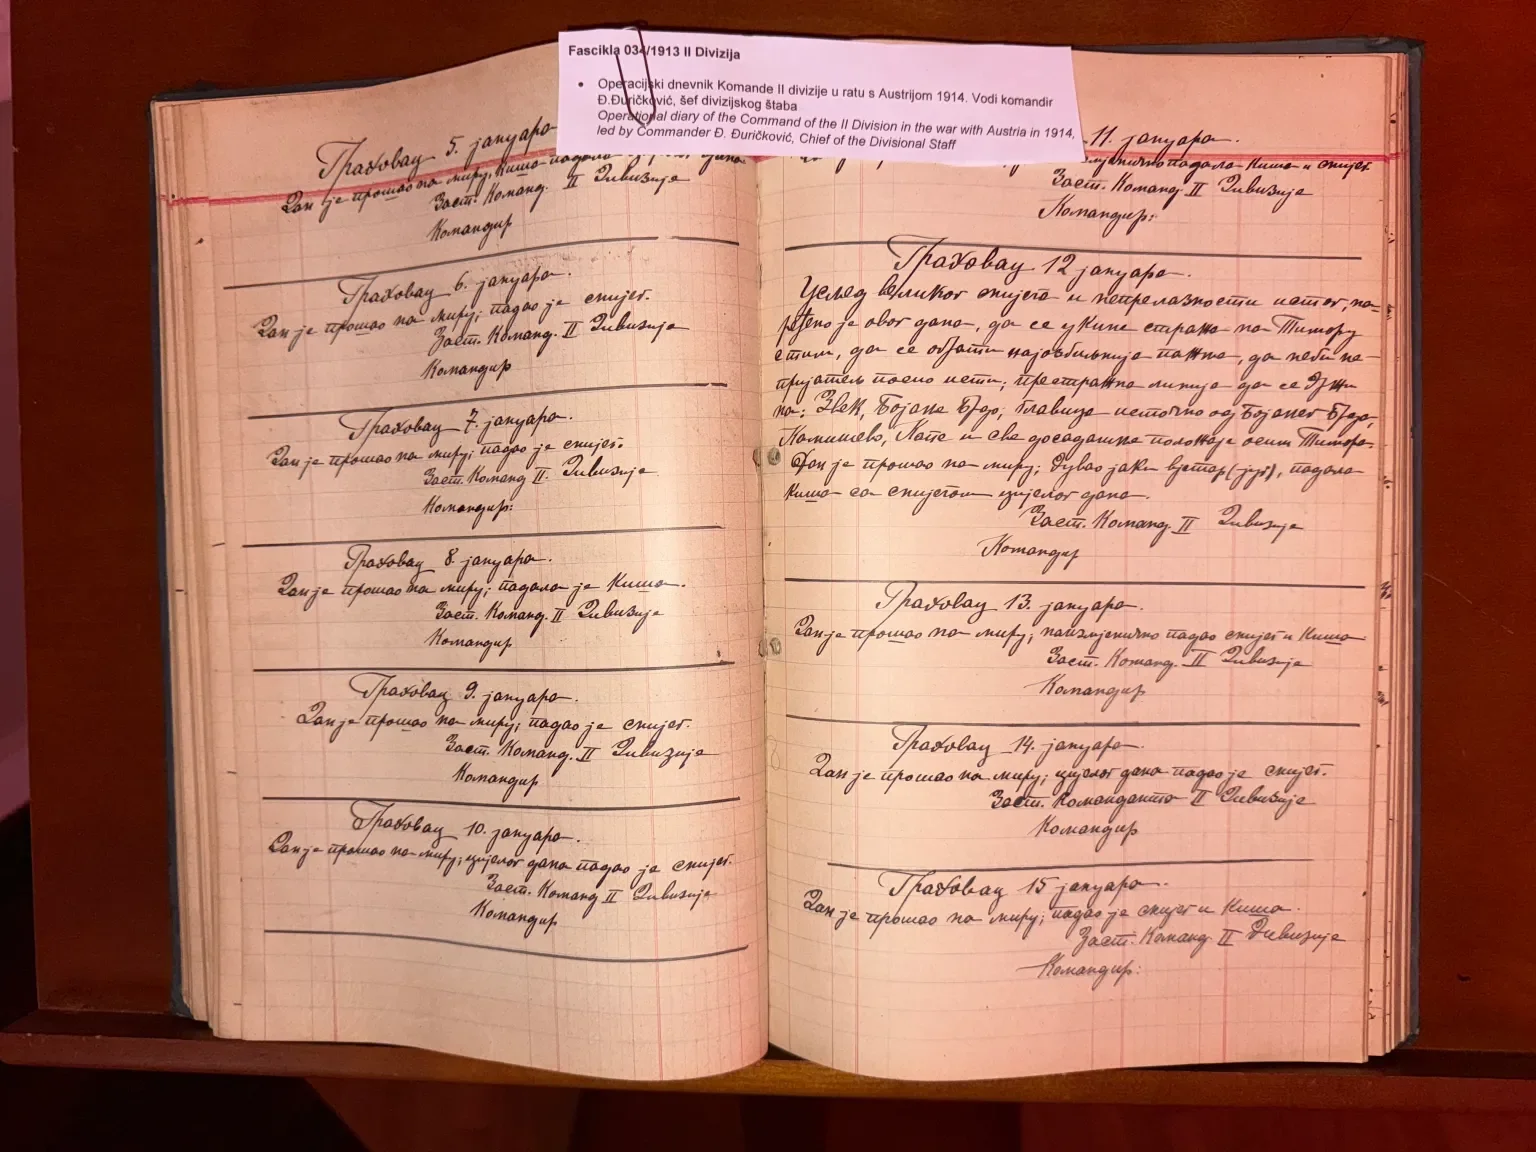 Fascikla 034/1913 II Divizija
• Operacijski dnevnik Komande II divizije u ratu s Austrijom 1914. Vodi komandir
Đ.Đuričković, šef divizijskog štaba
Operational diary of the Command of the II Division in the war with Austria in 1914,
led by Commander Đ. Đuričković, Chief of the Divisional Staff
Граховац 5. јануара
Дан је прошао на миру, киша падала
Заст. Команд. II Дивизије
Командир
Граховац 6. јануара.
Дан је прошао на миру; падао је снијег.
Заст. Команд. II Дивизије
Командир
Граховац 7. јануара.
Дан је прошао на миру; падао је снијег.
Заст. Команд II. Дивизије
Командир:
Граховац 8. јануара.
Дан је прошао на миру; падала је киша.
Заст. Команд. II Дивизије
Командир
Граховац 9. јануара.
Дан је прошао на миру; падао је снијег.
Заст. Команд. II Дивизије
Командир
Граховац 10. јануара.
Дан је прошао на миру; цијелог дана падао је снијег.
Заст. Команд II Дивизије
Командир
11. јануара.
падала киша и снијег
Заст. Команд. II Дивизије
Командир:
Граховац 12 јануара.
Усљед великог снијега и непрелазности истог, на-
ређено је овог дана, да се укине стража на Тимору
с тим, да се обрати најозбиљнија пажња, да неби не-
пријатељ посио исти; престражна линија да се држи
на: Звек, Бојање Брдо, главица источно од Бојањег Брда,
и све досадашње положаје осим Тимора.
Дан је прошао на миру; дувао јаки вјетар (југ), падала
киша са снијегом цијелог дана.
Заст. Команд. II Дивизије
Командир
Граховац 13. јануара.
Дан је прошао на миру; наизмјенично падао снијег и киша
Заст. Команд. II Дивизије
Командир
Граховац 14. јануара.
Дан је прошао на миру; цијелог дана падао је снијег.
Заст. Команданта II Дивизије
Командир
Граховац 15 јануара.
Дан је прошао на миру; падао је снијег и киша.
Заст. Команд. II Дивизије
Командир: